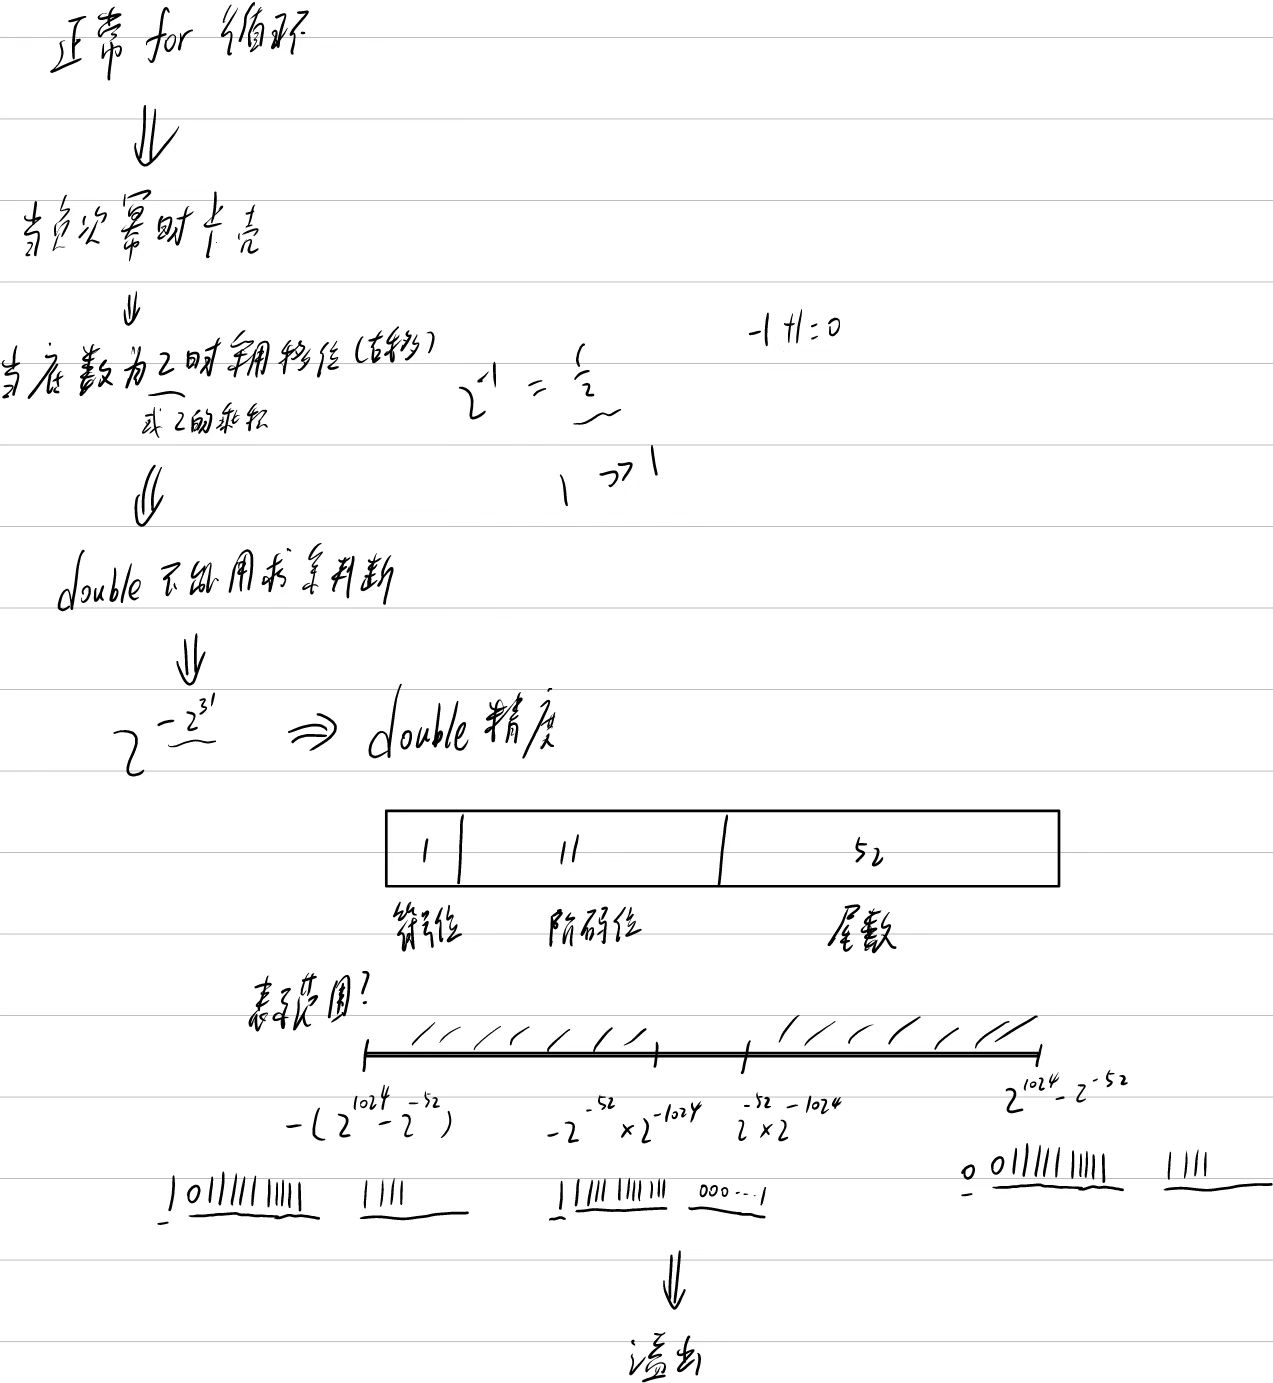 正常 for 循环
⇓
当负次幂时卡壳
⇓
当底数为2时采用移位(右移)
或2的乘积
-1+1=0
2^-1 = 1/2
1 >> 1
⇓
double 不能用求余判断
⇓
2^-2^31 ⇒ double 精度
1 11 52
符号位 阶码位 尾数
表示范围?
-(2^1024 - 2^-52) -2^-52 × 2^-1024 2^-52 × 2^-1024 2^1024 - 2^-52
1 01111111111 1111 1 11111111111 000...1 0 01111111111 1111
⇓
溢出